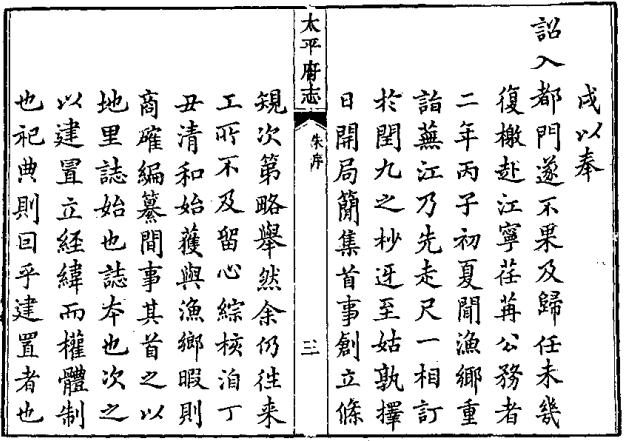 成以奉
詔入都門遂不果及歸任未幾
復檄赴江寧荏苒公務者
二年丙子初夏聞漁鄉重
詣蕪江乃先走尺一相訂
於閏九之杪迓至姑孰擇
日開局簡集首事創立條
太平府志
朱序
三
規次第略舉然余仍往来
工所不及留心綜核洎丁
丑清和始獲與漁鄉暇則
商確編纂間事其首之以
地里誌始也誌夲也次之
以建置立經緯而權體制
也祀典則回乎建置者也